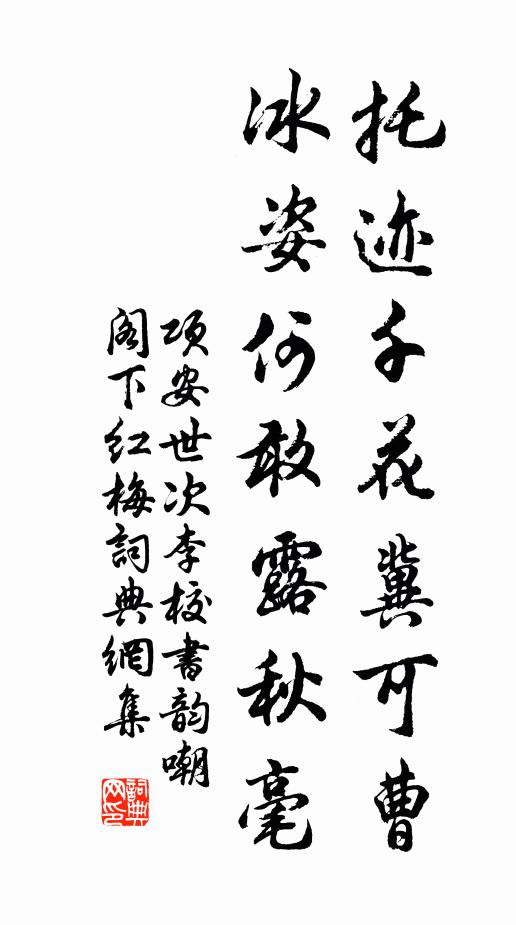 托迹千花冀可曹
冰姿何敢露秋毫
项安世次李校書韵嘲
阁下红梅詞典網集
詞典
网印